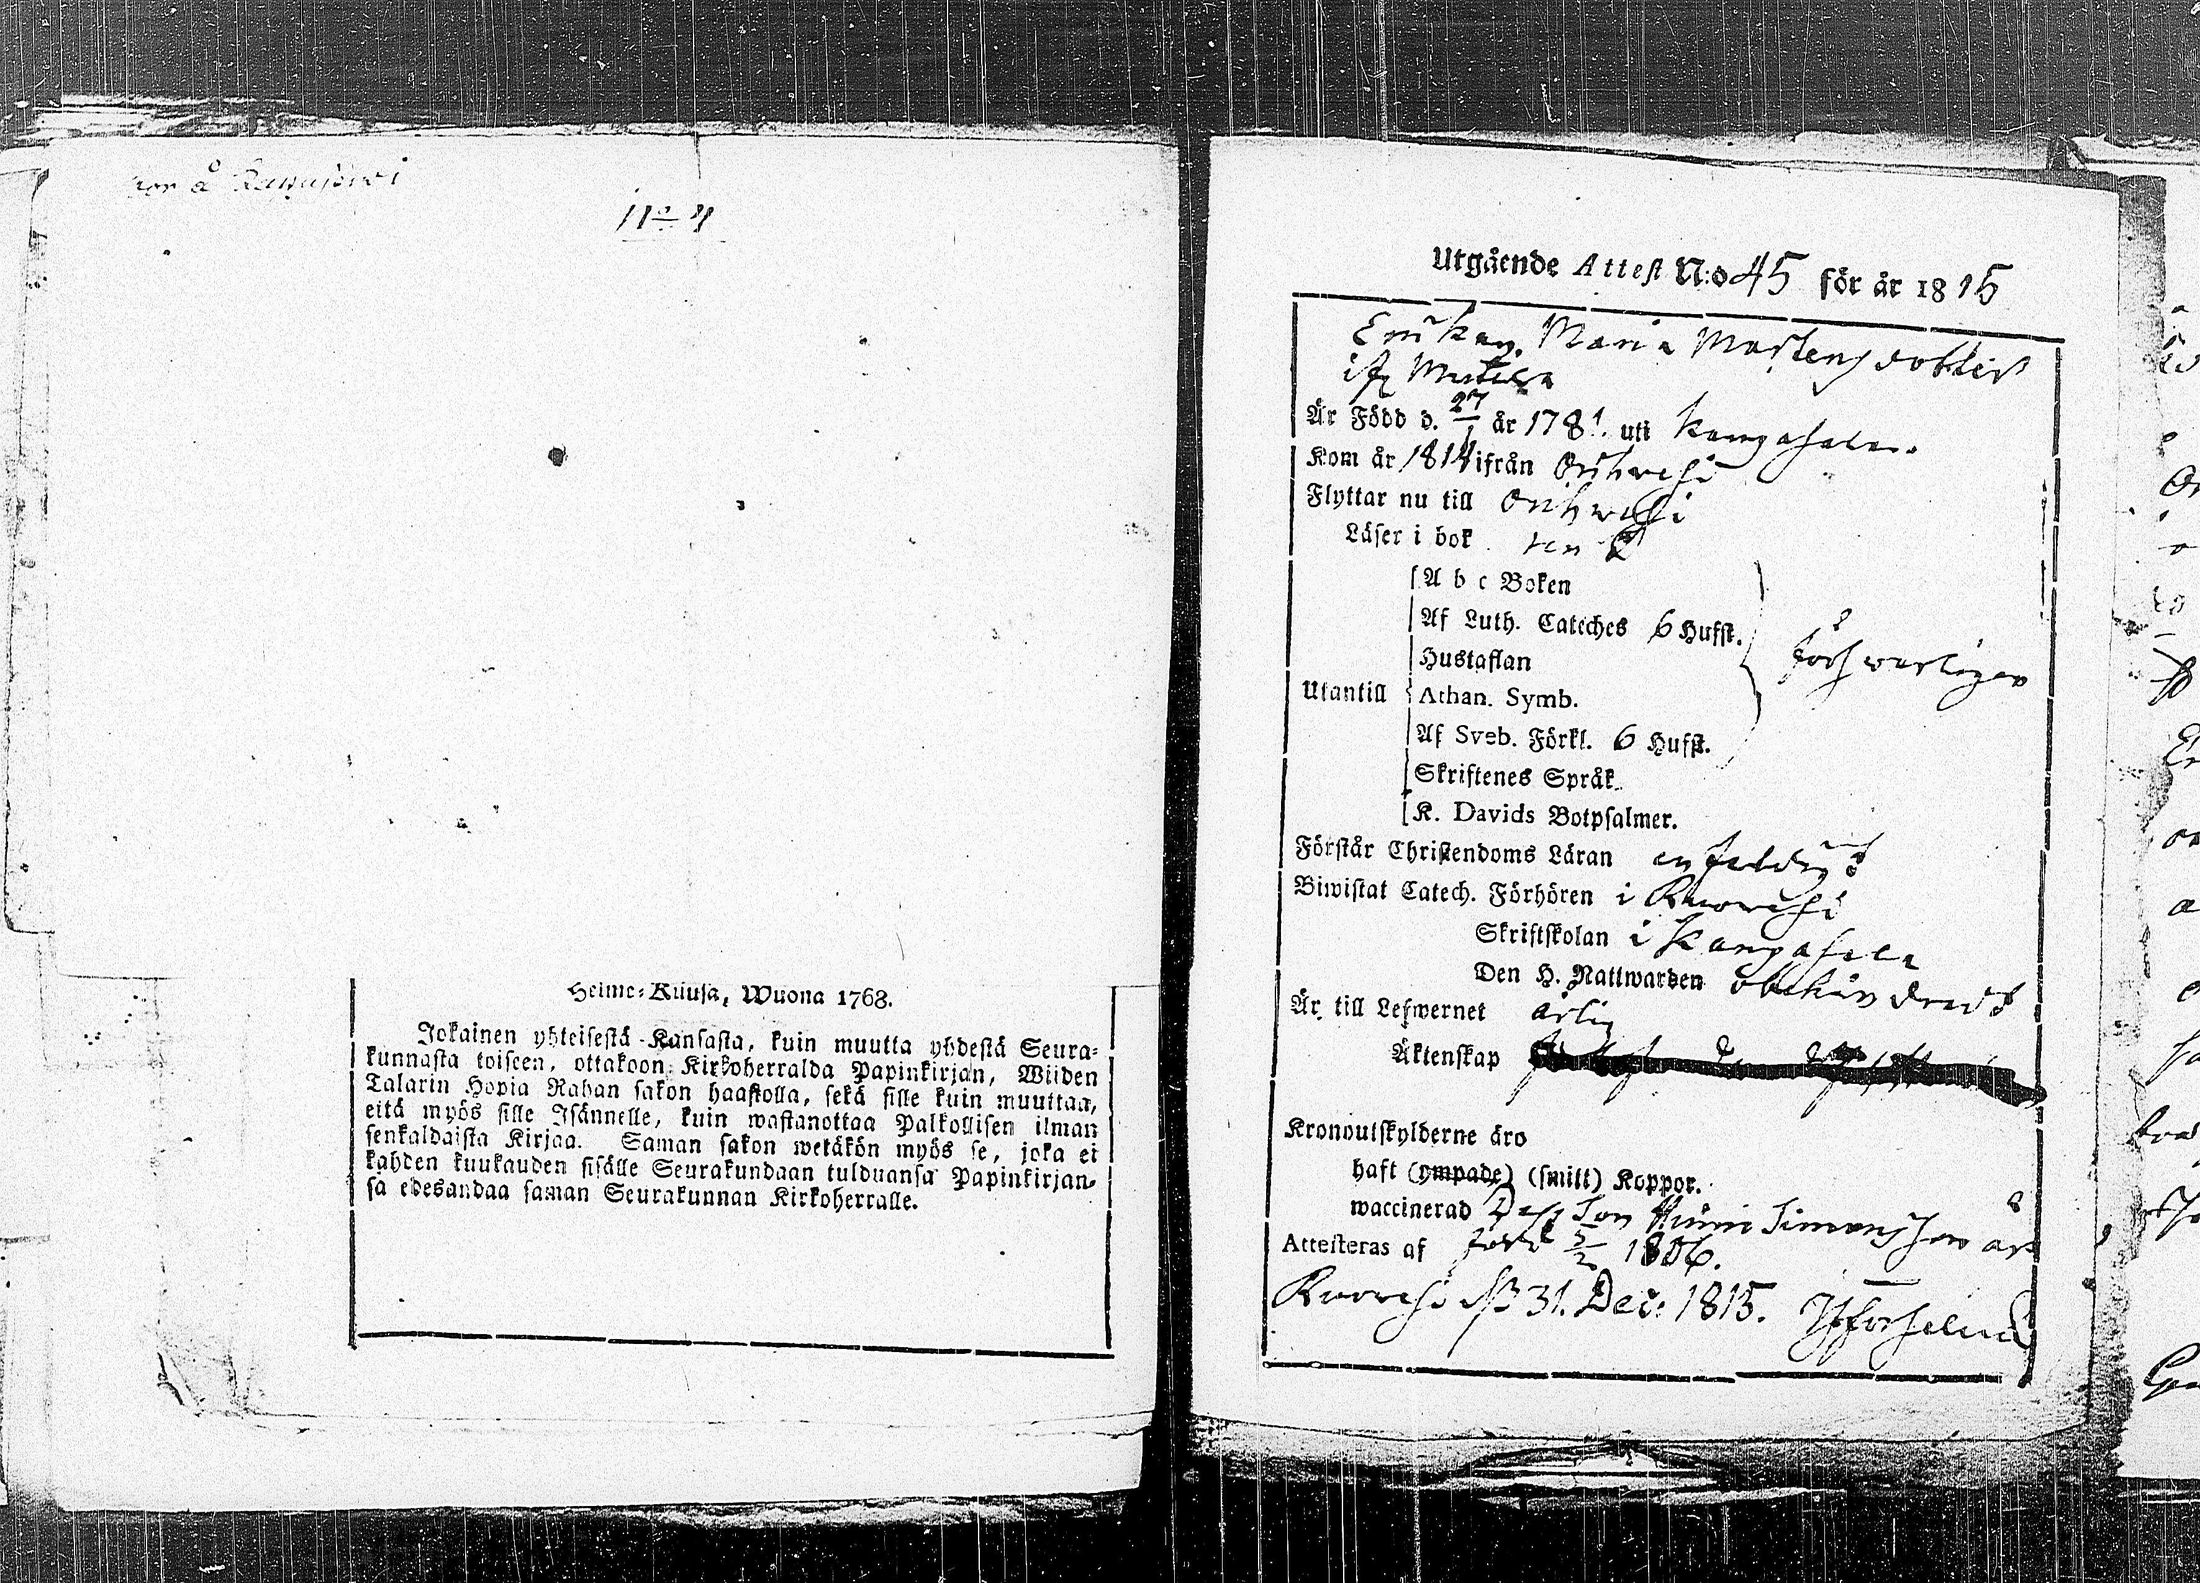 å
No 4
Heinä-Kuusa, Wuona 1768.
Jokainen yhteisestä Kansasta, kuin muutta yhdestä Seura-
kunnasta toiseen, ottakoon Kirkoherralda Papinkirjan, Wiiden
Talarin Hopia Rahan sakon haastolla, sekä sille kuin muuttaa,
eitä myös sille Isännelle, kuin wastanottaa Palkollisen ilman
senkaldaista Kirjaa. Saman sakon wetäkön myös se, joka ei
kahden kuukauden sisälle Seurakundaan tulduansa Papinkirjan-
sa edesandaa saman Seurakunnan Kirkoherralle.
Utgående Attest N:o 45 för år 1815
Enkan Maria Mårtensdotter
ifr
Är Född d. 27/1 år 1781. uti Kangasala.
Kom år 1814 ifrån Orihwesi
Flyttar nu till Orihwesi
Läser i bok ren
A b c Boken
Af Luth. Cateches 6 Hufst.
Hustaflan
Utantill Athan. Symb. förswarligen
Af Sveb. Förkl. 6 Hufst.
Skriftenes Språk.
K. Davids Botpsalmer.
Förstår Christendoms Läran enfaldigt
Biwistat Catech. Förhören i Ruowesi
Skriftskolan i Kangasala
Den H. Nattwarden obehindrad
Är till Lefwernet ärlig
Äktenskap
Kronoutskylderne äro
haft (ympade) (smitt) Koppor.
waccinerad Dess Son Simonsson är
Attesteras af född 5/2 1806.
Ruowesi d. 31. Dec: 1815.